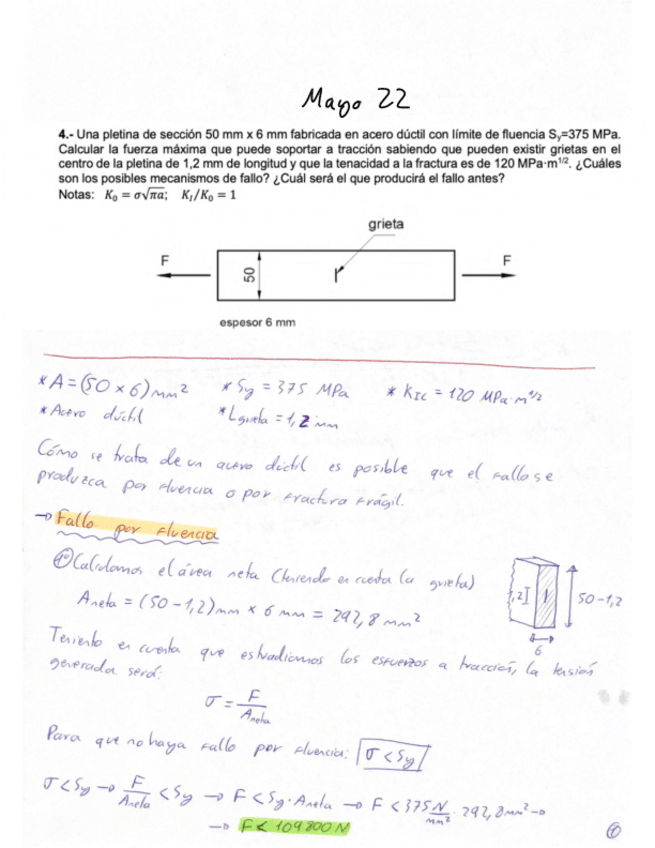 Mayo 22
4.- Una pletina de sección 50 mm x 6 mm fabricada en acero dúctil con límite de fluencia Sy=375 MPa.
Calcular la fuerza máxima que puede soportar a tracción sabiendo que pueden existir grietas en el
centro de la pletina de 1,2 mm de longitud y que la tenacidad a la fractura es de 120 MPa·m^1/2. ¿Cuáles
son los posibles mecanismos de fallo? ¿Cuál será el que producirá el fallo antes?
Notas: K₀ = σ√πa; K_I/K₀ = 1
grieta
F
F
50
espesor 6 mm
* A = (50 x 6) mm²   * Sy = 375 MPa   * K_IC = 120 MPa·m^1/2
* Acero dúctil   * Lgrieta = 1,2 mm
Cómo se trata de un acero dúctil es posible que el fallo se
produzca por fluencia o por fractura frágil.
→ Fallo por fluencia
1º Calculamos el área neta (teniendo en cuenta la grieta)
Aneta = (50-1,2) mm x 6 mm = 292,8 mm²
1,2
50-1,2
6
Teniento en cuenta que estudiamos los esfuerzos a tracción, la tensión
generada será:
σ = F/Aneta
Para que no haya fallo por fluencia: σ < Sy
σ < Sy → F/Aneta < Sy → F < Sy · Aneta → F < 375 N/mm² · 292,8 mm² →
→ F < 109800 N
1